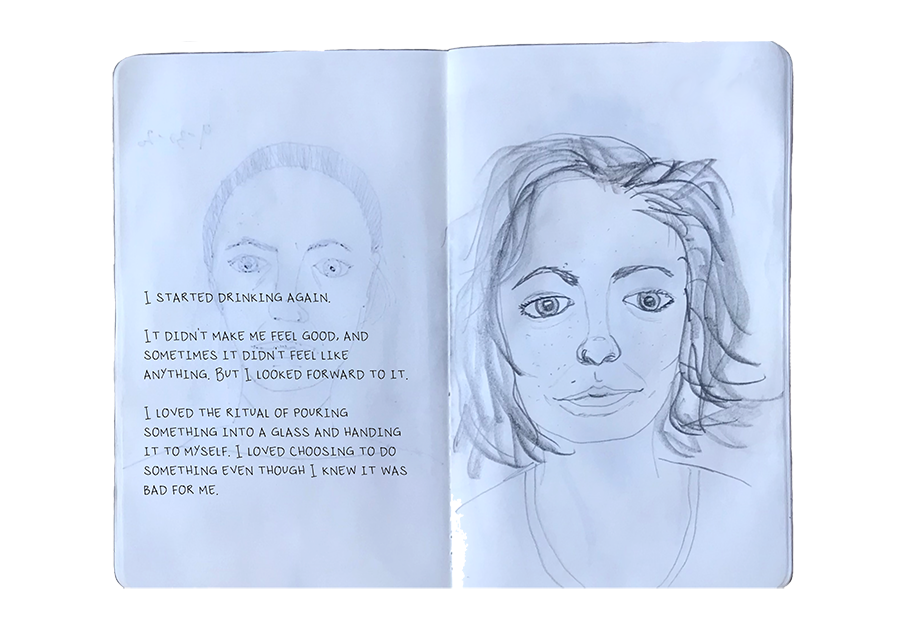 I STARTED DRINKING AGAIN.
IT DIDN'T MAKE ME FEEL GOOD, AND
SOMETIMES IT DIDN'T FEEL LIKE
ANYTHING. BUT I LOOKED FORWARD TO IT.
I LOVED THE RITUAL OF POURING
SOMETHING INTO A GLASS AND HANDING
IT TO MYSELF. I LOVED CHOOSING TO DO
SOMETHING EVEN THOUGH I KNEW IT WAS
BAD FOR ME.